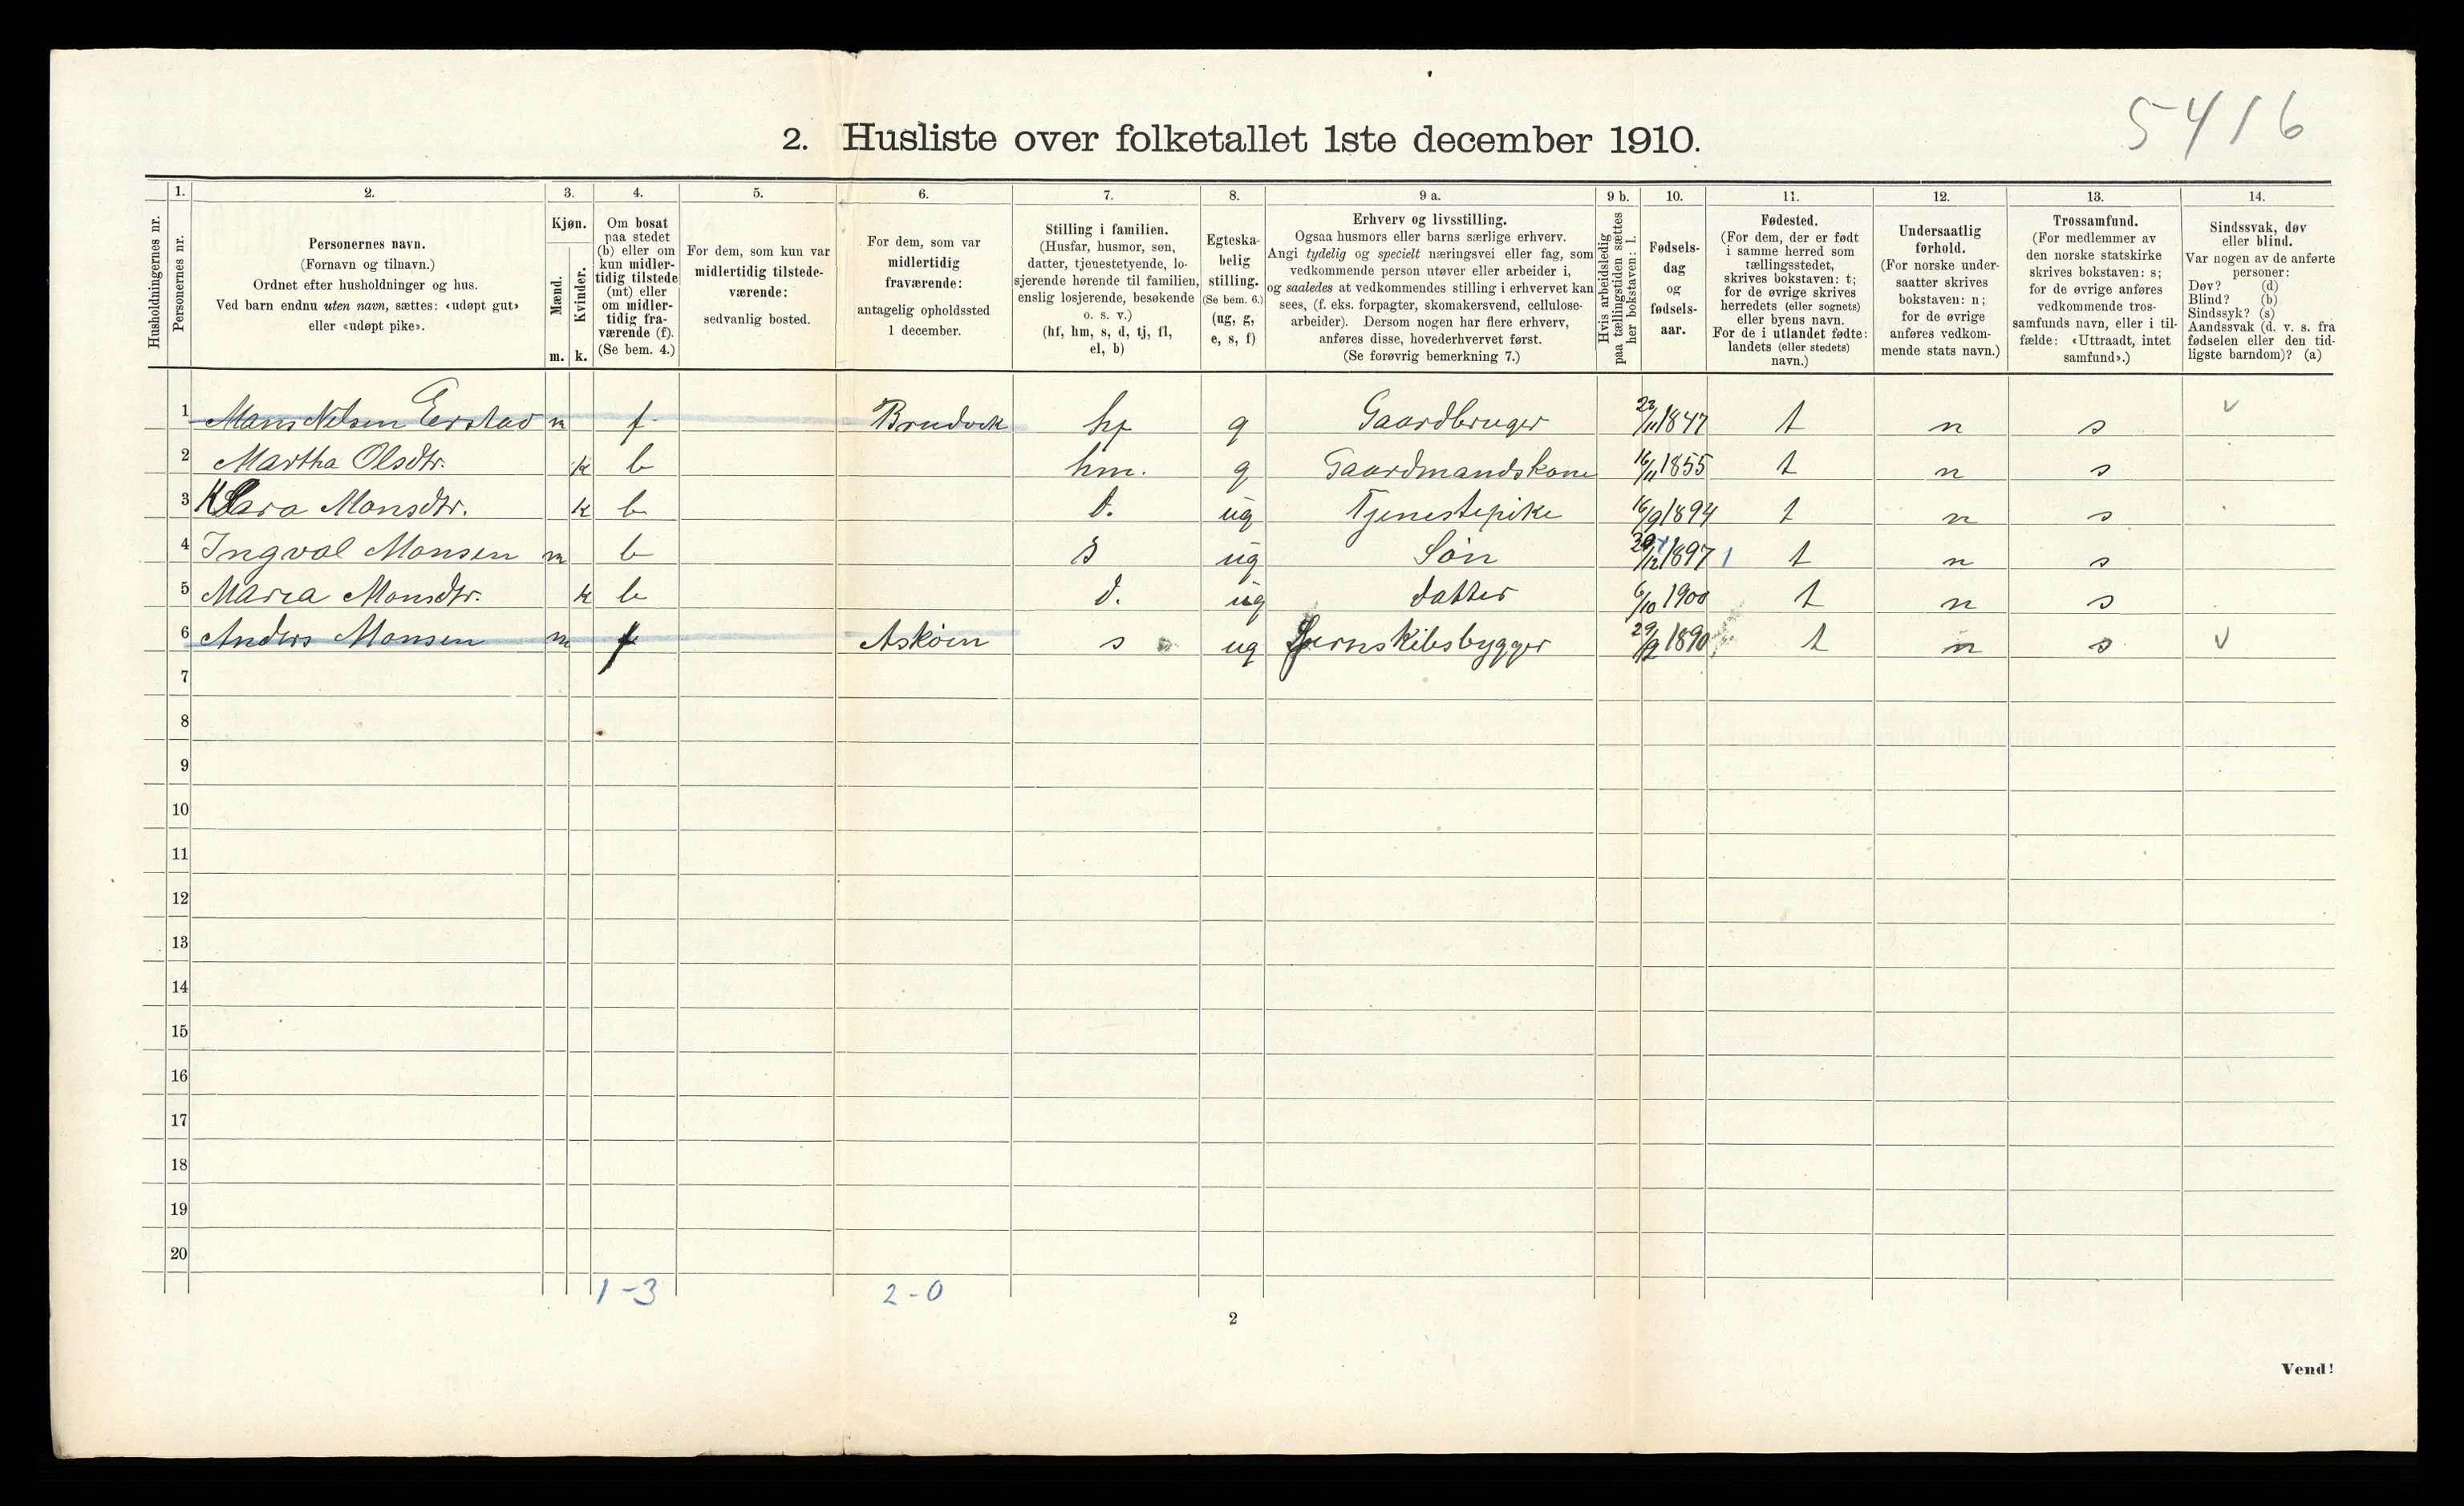 5416
2. Husliste over folketallet 1ste december 1910.
Husholdningernes nr.
1.
Personernes nr.
2.
Personernes navn.
(Fornavn og tilnavn.)
Ordnet efter husholdninger og hus.
Ved barn endnu uten navn, sættes: «udøpt gut»
eller «udøpt pike».
3.
Kjøn.
Mænd.
m.
Kvinder.
k.
4.
Om bosat
paa stedet
(b) eller om
kun midler-
tidig tilstede
(mt) eller
om midler-
tidig fra-
værende (f).
(Se bem. 4.)
5.
For dem, som kun var
midlertidig tilstede-
værende:
sedvanlig bosted.
6.
For dem, som var
midlertidig
fraværende:
antagelig opholdssted
1 december.
7.
Stilling i familien.
(Husfar, husmor, søn,
datter, tjenestetyende, lo-
sjerende hørende til familien,
enslig losjerende, besøkende
o. s. v.)
(hf, hm, s, d, tj, fl,
el, b)
8.
Egteska-
belig
stilling.
(Se bem. 6.)
(ug, g,
e, s, f)
9 a.
Erhverv og livsstilling.
Ogsaa husmors eller barns særlige erhverv.
Angi tydelig og specielt næringsvei eller fag, som
vedkommende person utøver eller arbeider i,
og saaledes at vedkommendes stilling i erhvervet kan
sees, (f. eks. forpagter, skomakersvend, cellulose-
arbeider). Dersom nogen har flere erhverv,
anføres disse, hovederhvervet først.
(Se forøvrig bemerkning 7.)
9 b.
Hvis arbeidsledig
paa tællingstiden sættes
her bokstaven: l.
10.
Fødsels-
dag
og
fødsels-
aar.
11.
Fødested.
(For dem, der er født
i samme herred som
tællingsstedet,
skrives bokstaven: t;
for de øvrige skrives
herredets (eller sognets)
eller byens navn.
For de i utlandet fødte:
landets (eller stedets)
navn.)
12.
Undersaatlig
forhold.
(For norske under-
saatter skrives
bokstaven: n;
for de øvrige
anføres vedkom-
mende stats navn.)
13.
Trossamfund.
(For medlemmer av
den norske statskirke
skrives bokstaven: s;
for de øvrige anføres
vedkommende tros-
samfunds navn, eller i til-
fælde: «Uttraadt, intet
samfund».)
14.
Sindssvak, døv
eller blind.
Var nogen av de anførte
personer:
Døv? (d)
Blind? (b)
Sindssyk? (s)
Aandssvak (d. v. s. fra
fødselen eller den tid-
ligste barndom)? (a)
1 Mons Nilsen Erstad m f Brudvik hf g Gaardbruger 22/11 1847 t n s v
2 Martha Olsdtr. k b hm. g Gaardmandskone 16/11 1855 t n s
3 Klara Monsdtr. k b d. ug Tjenestepike 16/9 1894 t n s
4 Ingval Monsen m b s ug Søn /12 1897 1 t n s
5 Maria Monsdtr. k b d. ug datter 6/10 1900 t n s
6 Anders Monsen m f Askøen s ug Jernskibsbygger 29/9 1890 t n s v
7
8
9
10
11
12
13
14
15
16
17
18
19
20
1-3 2-0
2
Vend!